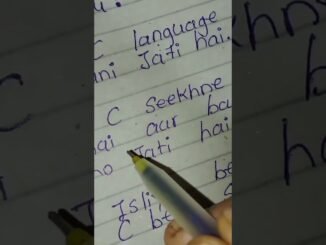 u.
C language
ani Jati hai.
C Seekhne
hai aur ba
ho Jati hai
Isli be
C be